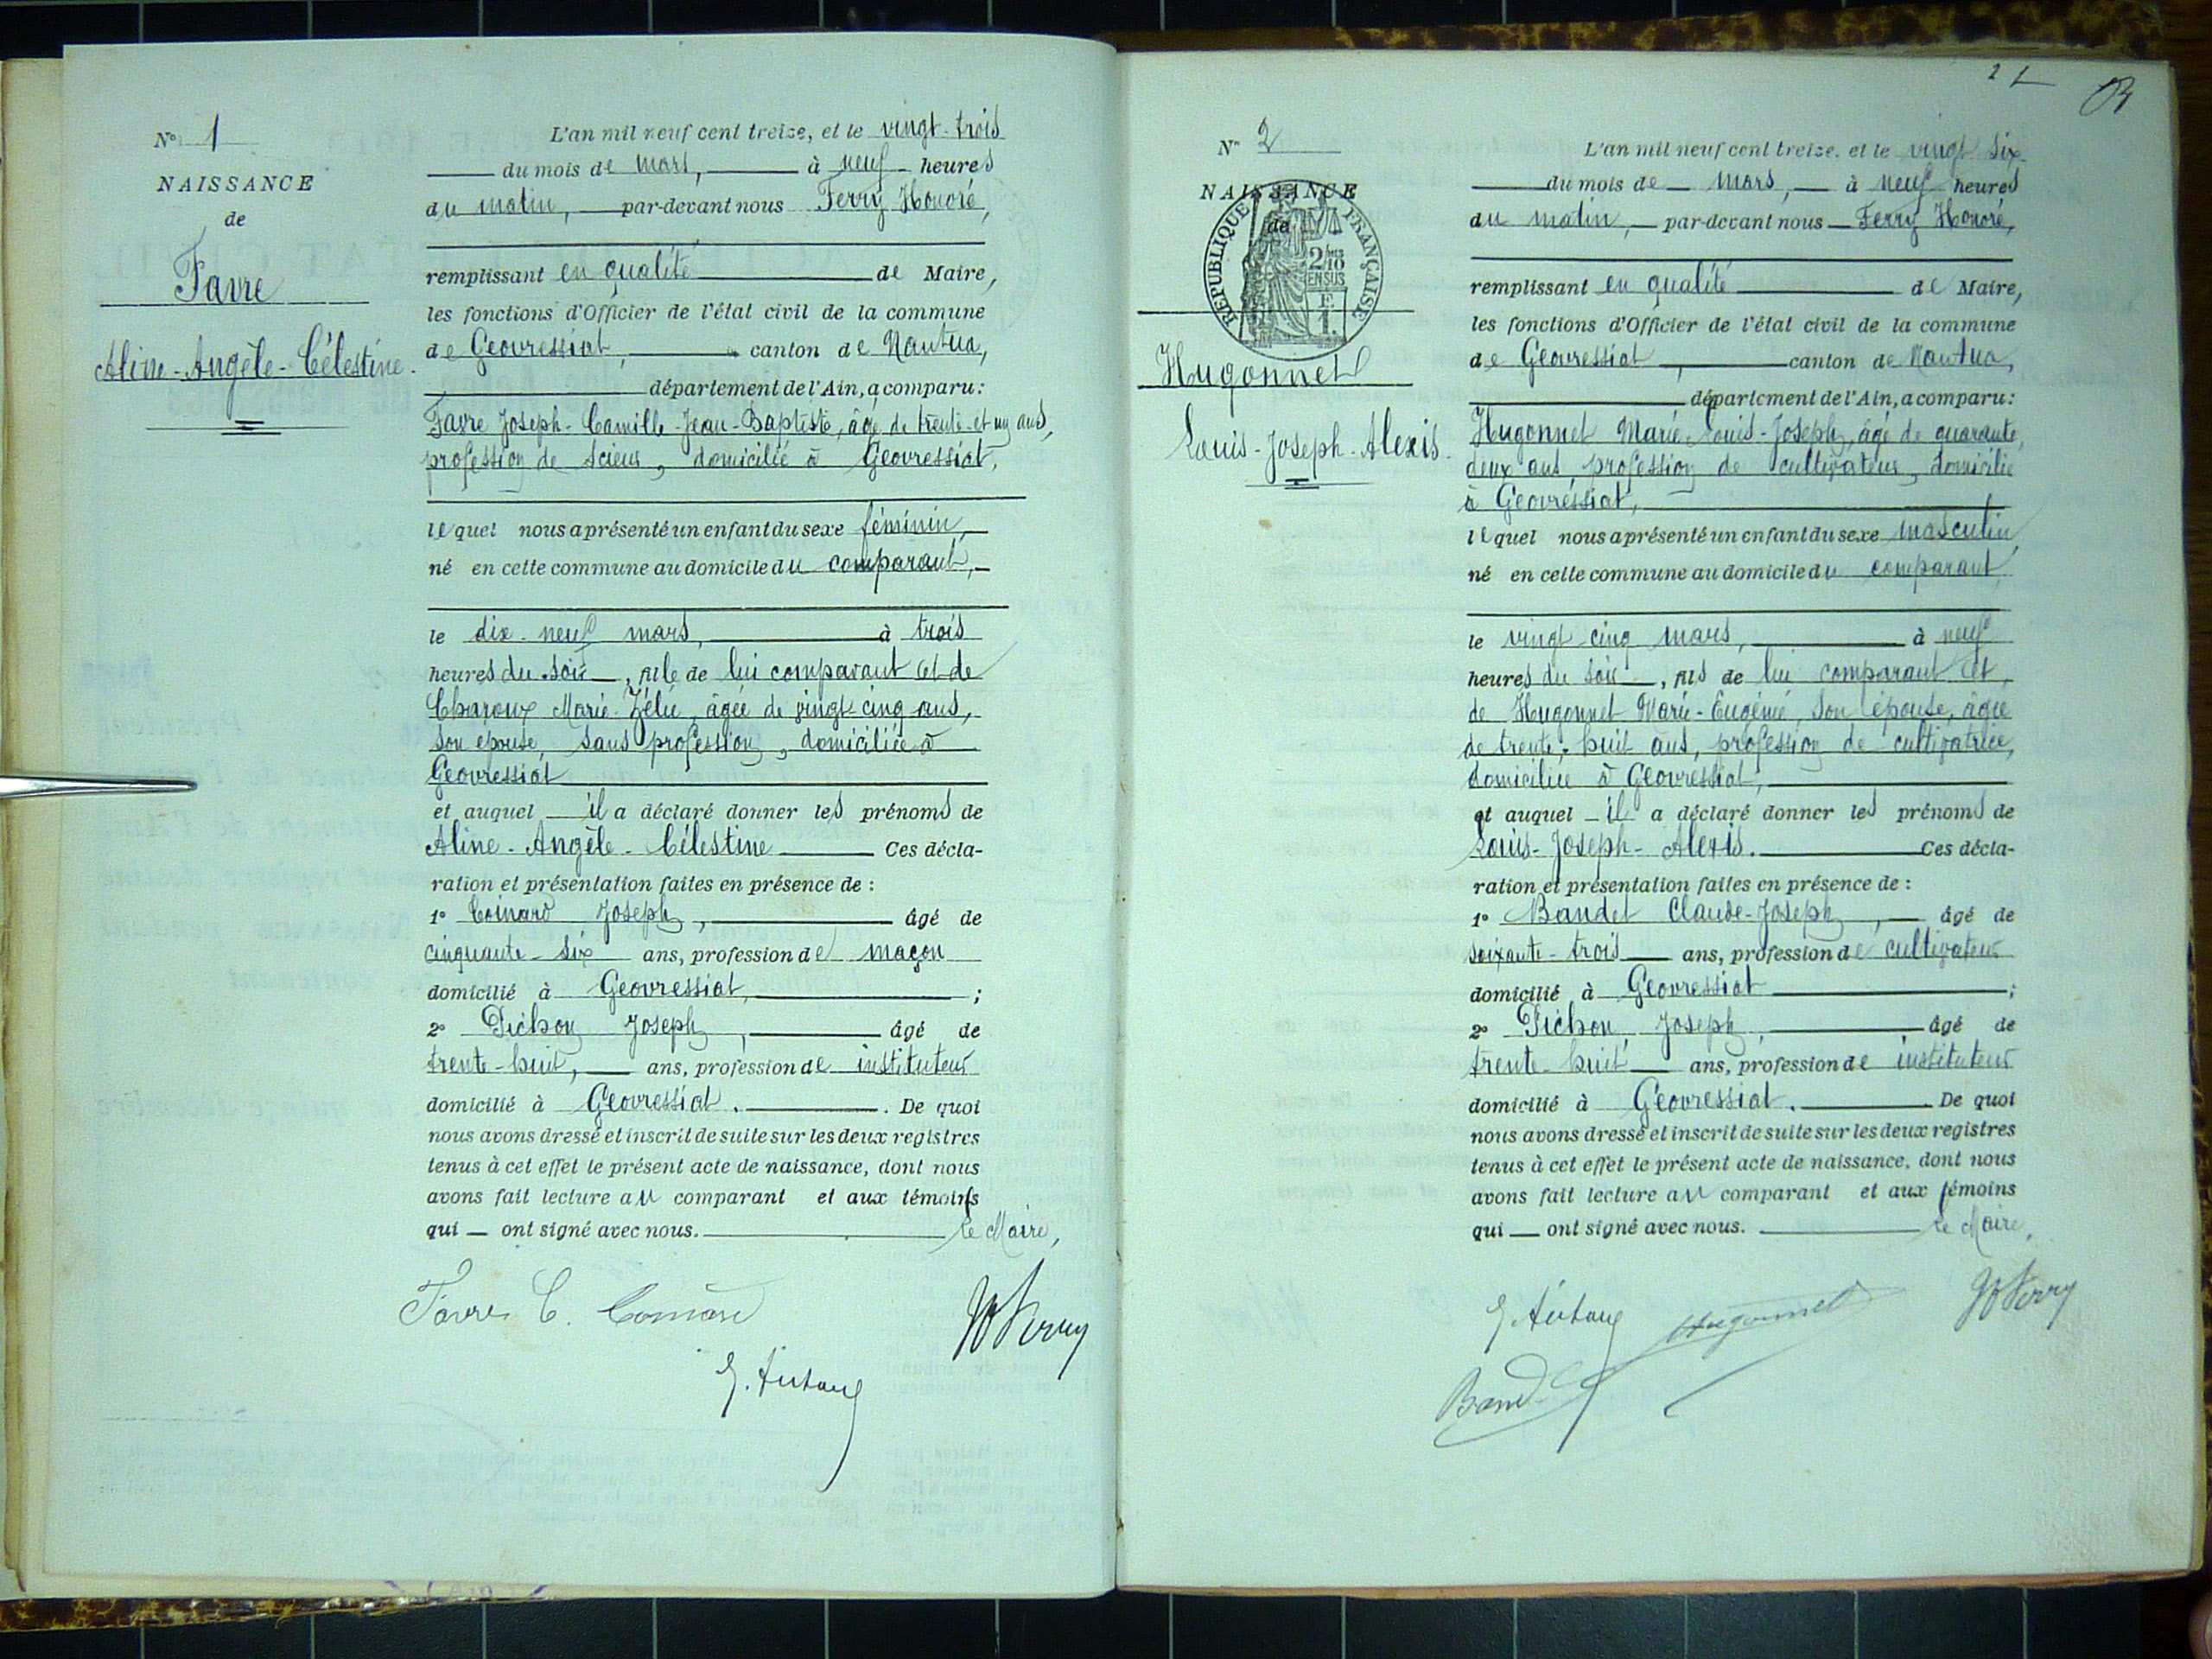 N° 1
NAISSANCE
de
Favre
Aline-Angèle-Célestine.
L'an mil neuf cent treize, et le vingt-trois
du mois de mars, à neuf heures
du matin, par-devant nous Ferry Honoré,
remplissant en qualité de Maire,
les fonctions d'Officier de l'état civil de la commune
de Geovressiat, canton de Nantua,
département de l'Ain, a comparu:
Favre Joseph-Camille-Jean-Baptiste, âgé de trente-et un ans,
profession de scieur, domicilié à Geovressiat,
lequel nous a présenté un enfant du sexe féminin,
né en cette commune au domicile du comparant,
le dix-neuf mars, à trois
heures du soir, fille de lui comparant et de
Marie-Zélie, âgée de vingt-cinq ans,
son épouse, sans profession, domiciliée à
Geovressiat
et auquel il a déclaré donner les prénoms de
Aline-Angèle-Célestine Ces décla-
ration et présentation faites en présence de :
1° Coinard Joseph, âgé de
cinquante-six ans, profession de maçon
domicilié à Geovressiat, ;
2° Pichon Joseph, âgé de
trente-huit, ans, profession de instituteur
domicilié à Geovressiat. . De quoi
nous avons dressé et inscrit de suite sur les deux registres
tenus à cet effet le présent acte de naissance, dont nous
avons fait lecture au comparant et aux témoins
qui — ont signé avec nous. Le Maire,
Favre C. Coinard
Hre Ferry
N° 2
NAISSANCE
de
RÉPUBLIQUE FRANÇAISE
2/10
EN SUS
F.
1.
Hugonnet
Louis-Joseph-Alexis.
L'an mil neuf cent treize, et le vingt six
du mois de mars, à neuf heures
du matin, par-devant nous Ferry Honoré,
remplissant en qualité de Maire,
les fonctions d'Officier de l'état civil de la commune
de Geovressiat, canton de Nantua,
département de l'Ain, a comparu:
Hugonnet Marie-Louis-Joseph, âgé de quarante
deux ans, profession de cultivateur, domicilié
à Geovressiat,
lequel nous a présenté un enfant du sexe masculin
né en cette commune au domicile du comparant
le vingt cinq mars, à neuf
heures du soir, fils de lui comparant et,
de Hugonnet Marie-Eugénie, son épouse, âgée
de trente-huit ans, profession de cultivatrice,
domiciliée à Geovressiat,
et auquel il a déclaré donner les prénoms de
Louis-Joseph-Alexis. Ces décla-
ration et présentation faites en présence de :
1° Bandet Claude-Joseph, âgé de
soixante-trois ans, profession de cultivateur
domicilié à Geovressiat ;
2° Pichon Joseph, âgé de
trente-huit ans, profession de instituteur
domicilié à Geovressiat. De quoi
nous avons dressé et inscrit de suite sur les deux registres
tenus à cet effet le présent acte de naissance, dont nous
avons fait lecture au comparant et aux témoins
qui — ont signé avec nous. Le Maire,
Hugonnet
Hre Ferry